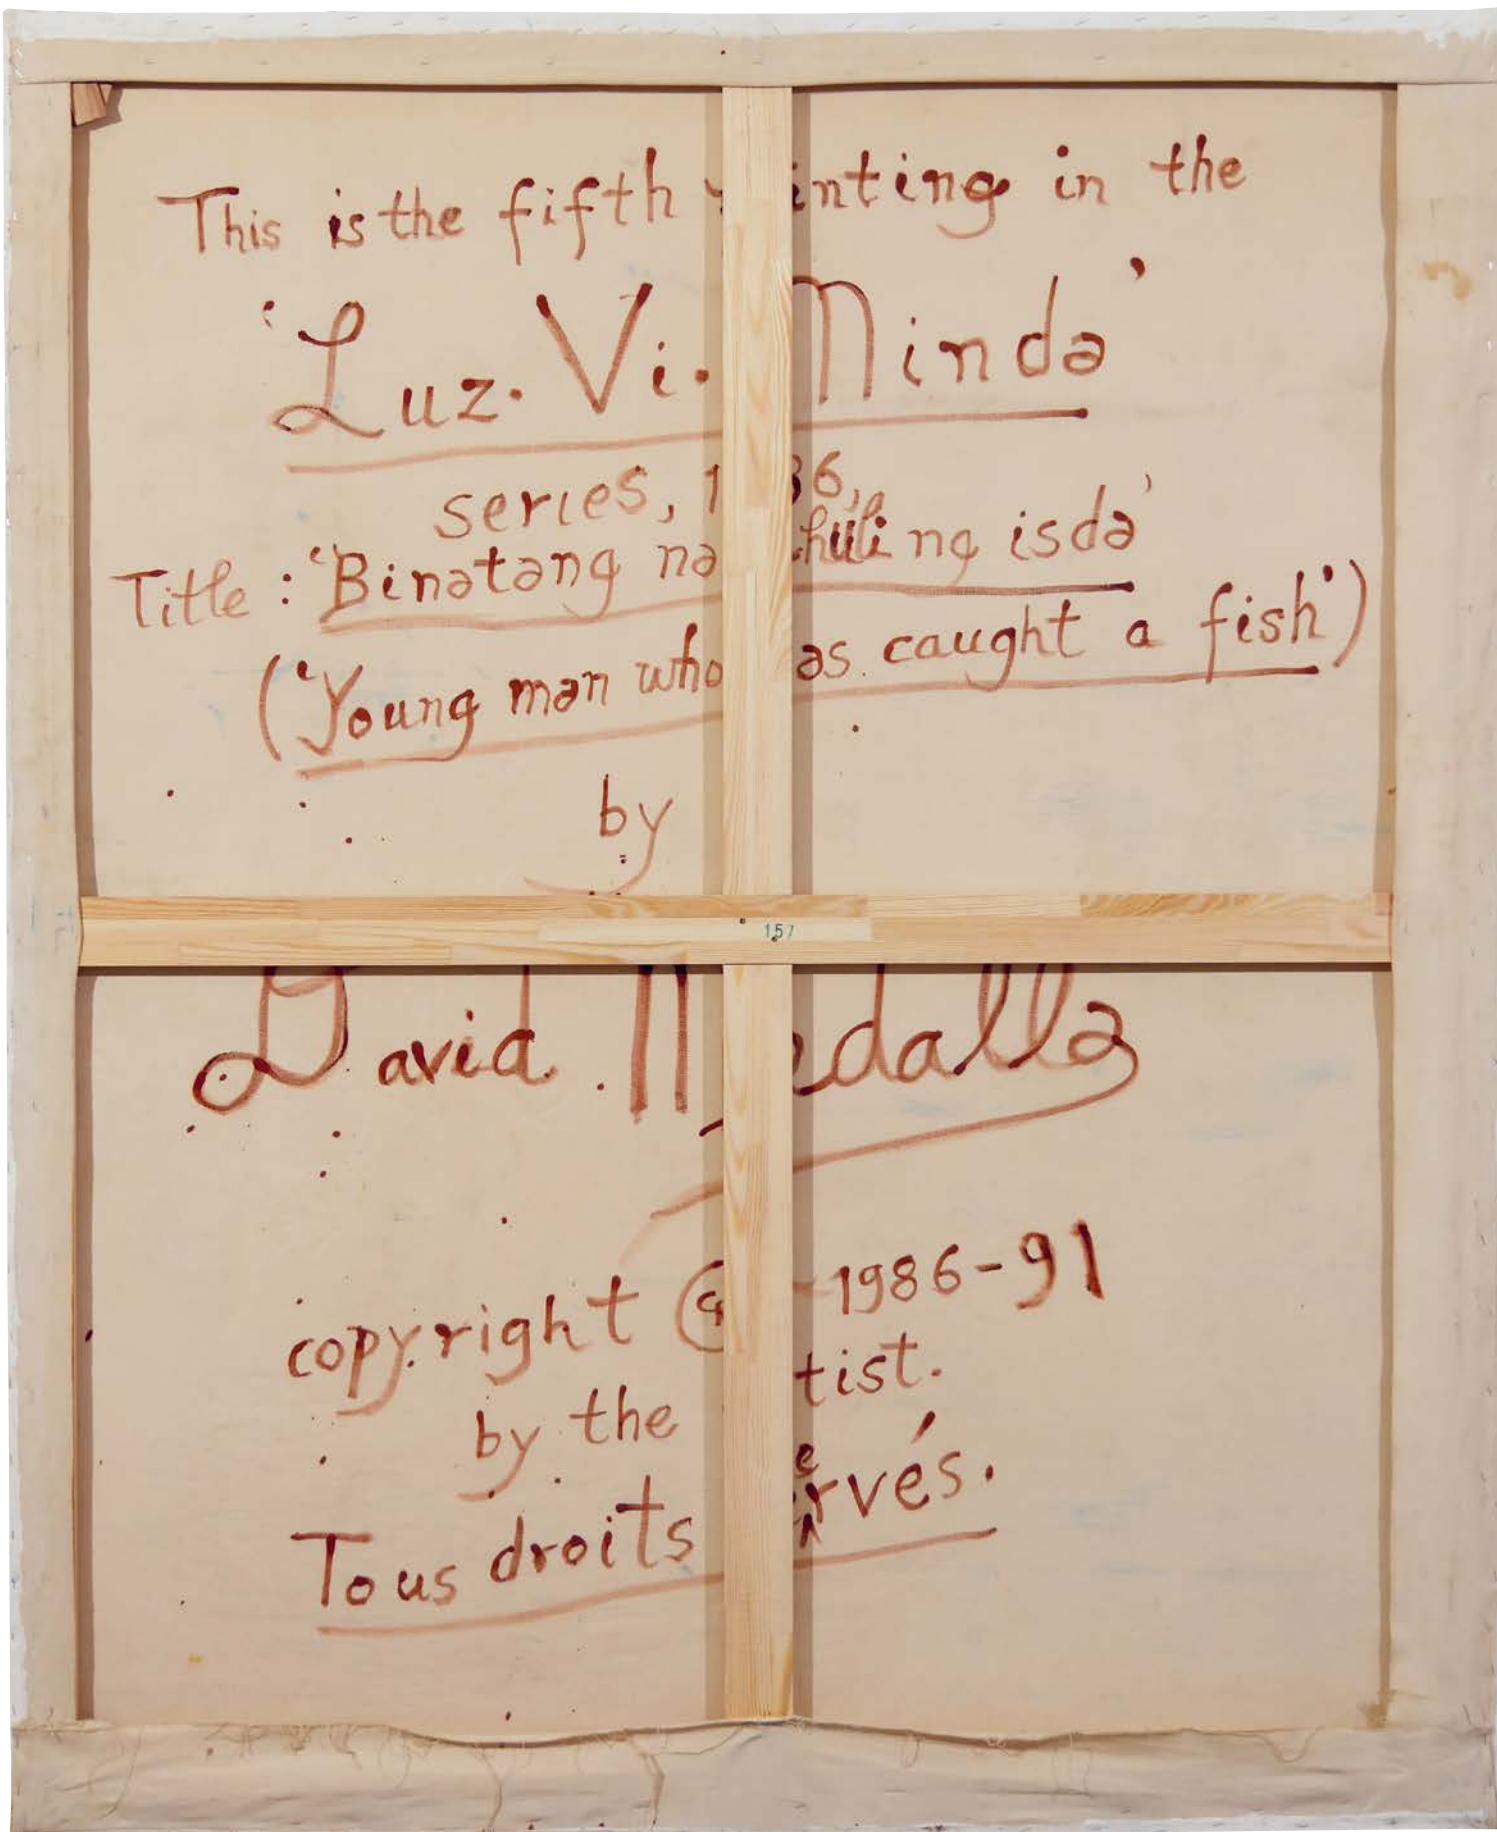 This is the fifth painting in the
'Luz. Vi. Minda'
series, 1986,
Title : 'Binatang nakahuli ng isda'
('Young man who has caught a fish')
by
157
David Medalla
copyright © - 1986-91
by the artist.
Tous droits réservés.